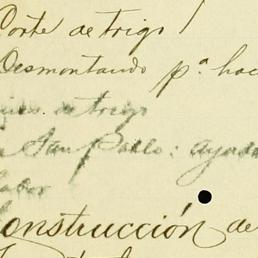 Corte de trigo
Desmontando pª hac
de trigo
San Pablo: ayuda
labor
onstrucción de